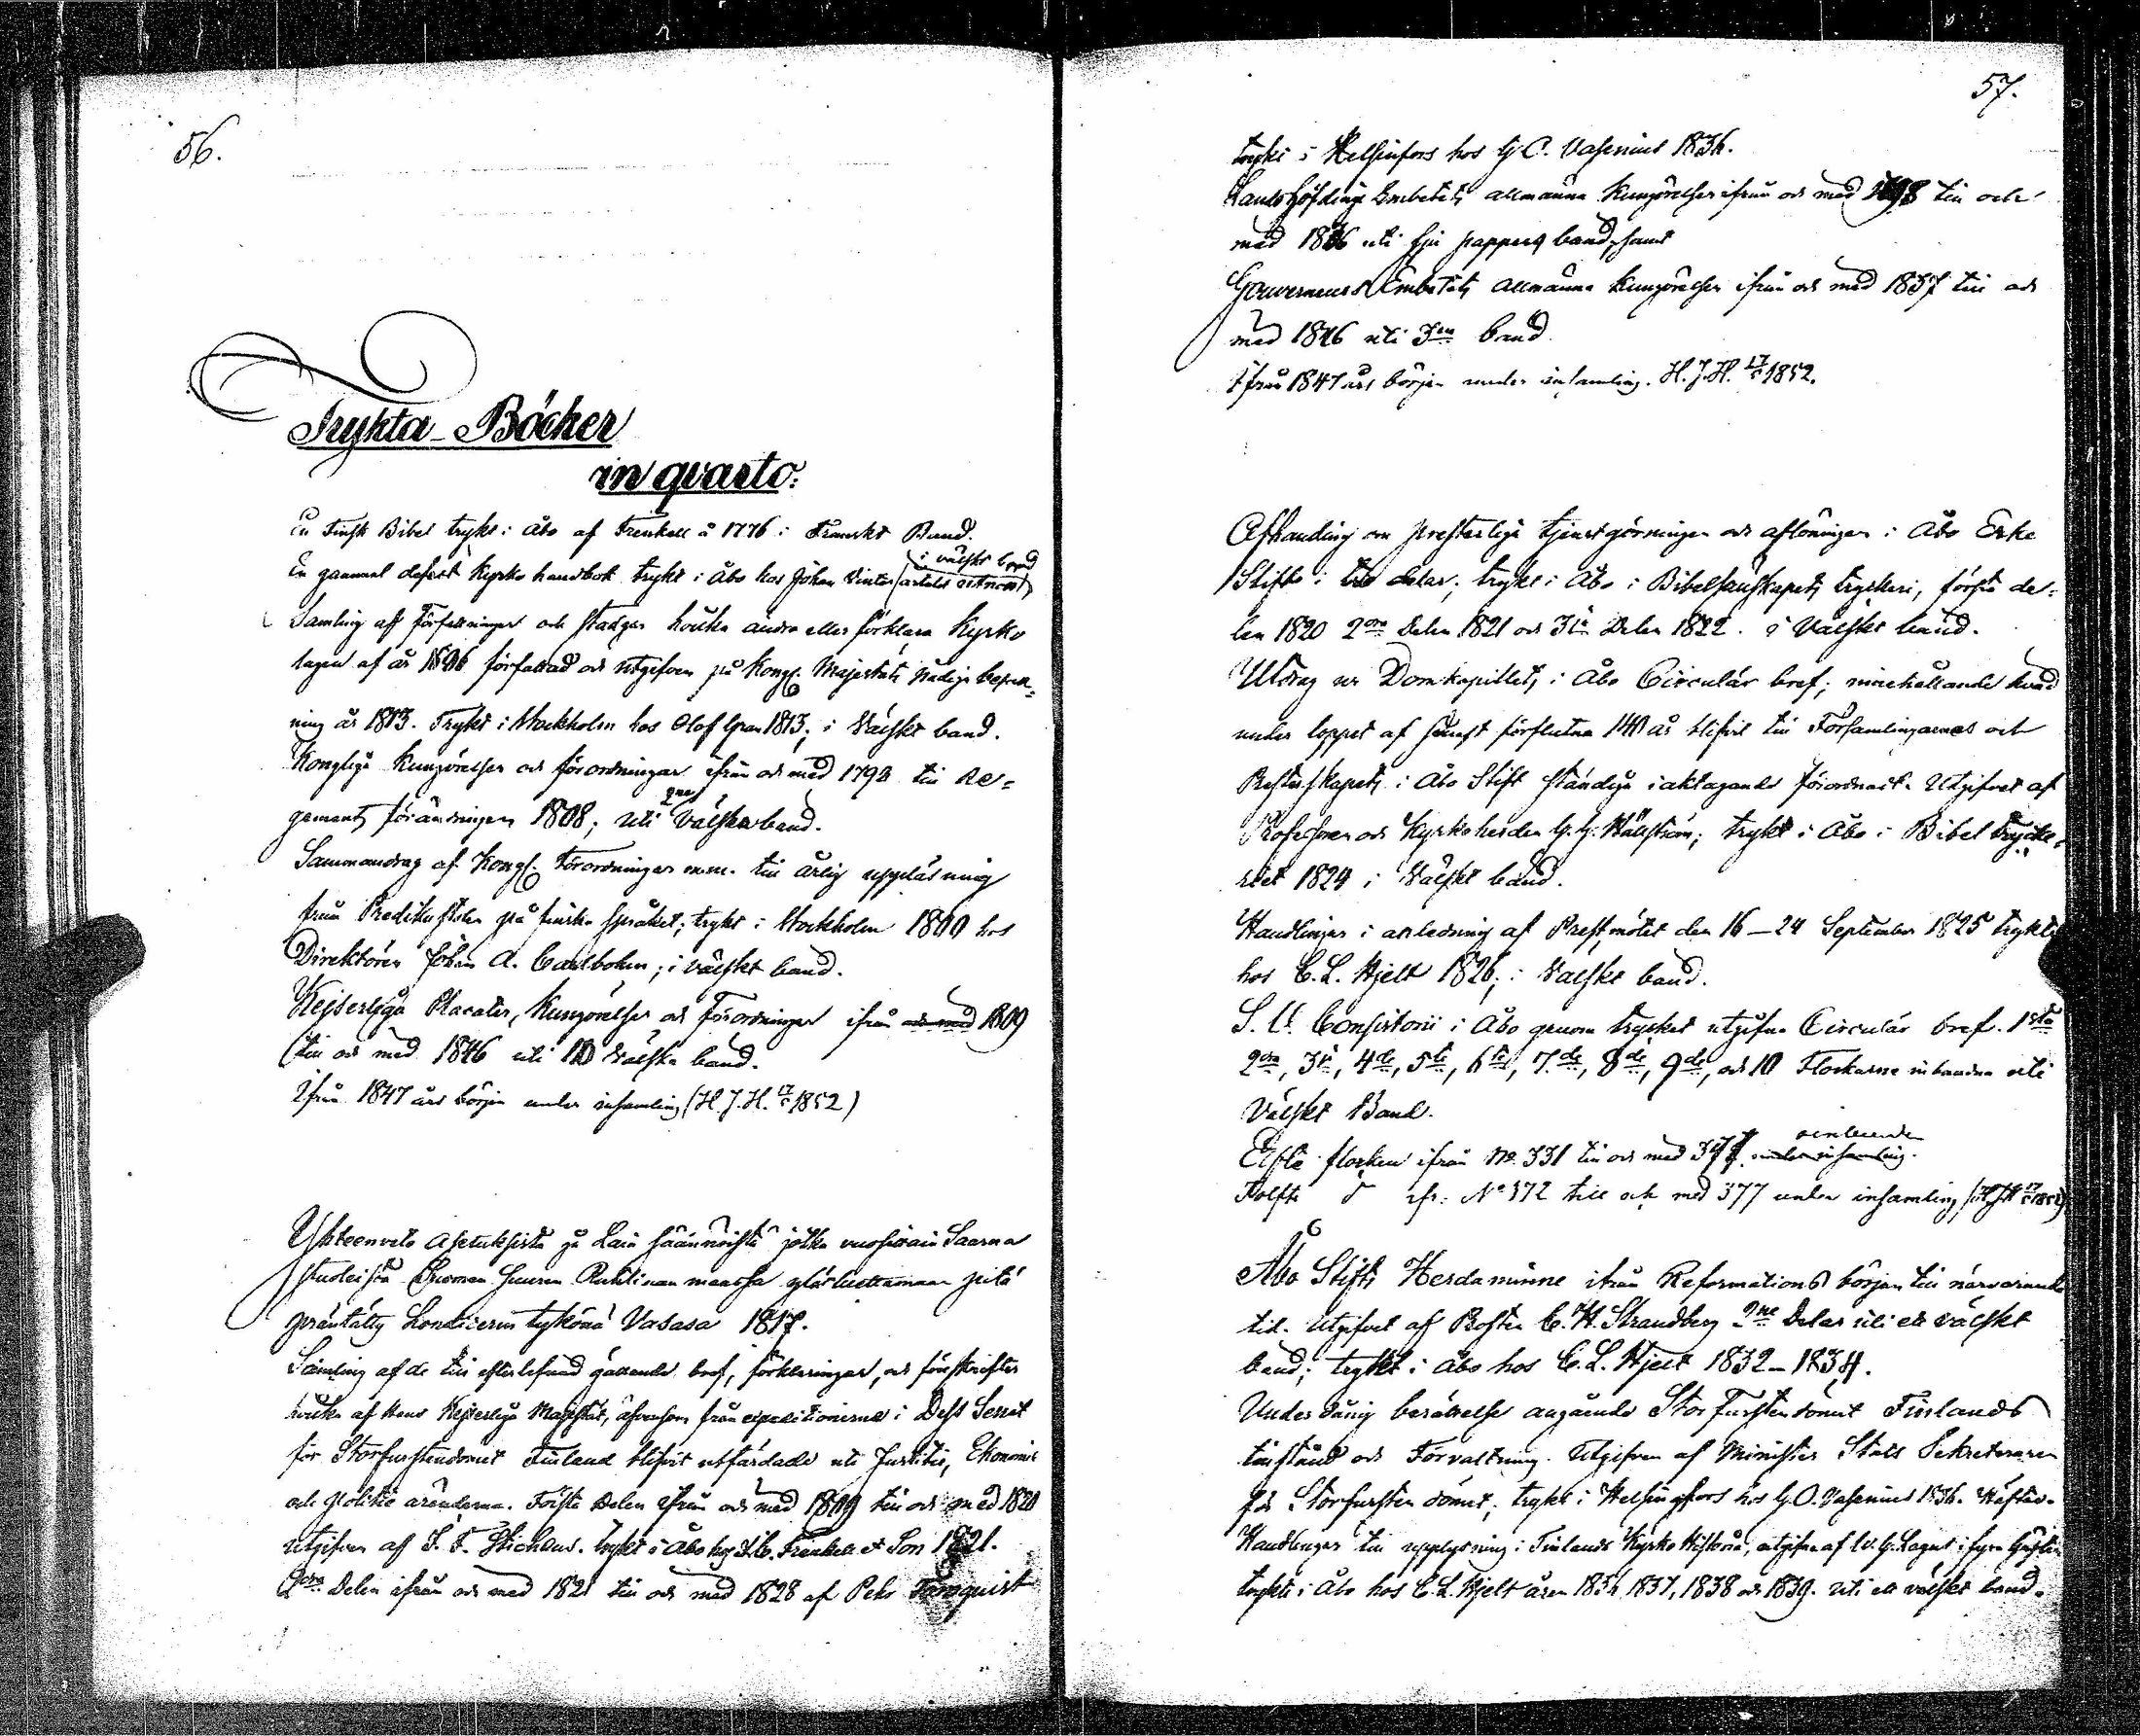 56.
Trykta Böcker
in qvarto:
En Finsk Bibel trykt i Åbo af Frenkell å 1776 i Franskt Band.
i välskt band
En gammal defect Kyrko handbok trykt i Åbo hos Johan Winter
Samling af Författningar och stadgar hvilka ändra eller förklara Kyrko
lagen af år 1686 författad och utgifven på Kongl. Majestäts nådiga befall-
ning år 1813. Trykt i Stockholm hos Olof Gran 1813; i Välskt band.
Kongliga Kungörelser och förordningar ifrån och med 1792 till Re-
gements förändringen 1808; uti 2ne Välska band.
Sammandrag af Kongl. Förordningar m.m. till årlig uppläsning
från Predikstolen på finska språket; trykt i Stockholm 1800 hos
Direktören Johan A. Carlbohm; i välskt band.
Kejserliga Placater, Kungörelser och Förordningar ifrån och med 1809
till och med 1846 uti 10 Välska band.
Ifrån 1847 års början under insamling (H. J. H. 1852)
Yhteenveto Asetuksista ja Lain säännöistä jotka vuosirain Saarna
stuoleista Suomen Suuren Ruhtinan maassa ylösluettaman pitä
präntätty Londicerin tykönä Vasasa 1817.
Samling af de till efterlefnad gällande bref, förklaringar, och föreskrifter
hvilka af Hans Kejserliga Majestät, äfvensom från expeditionerne i Dess Senat
för Storfurstendömet Finland blifvit utfärdade uti Justitie, Ekonomie
och Politie ärenderne. Första Delen ifrån och med 1809 till och med 1820
utgifven af J. F. Stichæus. trykt i Åbo hos J. C. Frenkell & Son 1821.
2dra Delen ifrån och med 1821 till och med 1828 af Pehr Törnquist
57.
trykt i Helsinfors hos G. O. Wasenius 1836.
Landshöfdinge Embetets allmänna Kungörelser ifrån och med 1798 till och
med 1836 uti sju pappers band, samt
Gouverneurs Embetets allmänna kungörelser ifrån och med 1837 till och
med 1846 uti 3en band.
Ifrån 1847 års början under insamling. H. J. H. 1852.
Afhandling om presterliga tjenstgöringen och aflöningen i Åbo Erke
Stift i tre delar; trykt i Åbo i Bibelsällskapets tryckeri, första de-
len 1820 2dra Delen 1821 och 3je Delen 1822. i Välskt band.
Utdrag ur Domkapitlets i Åbo Circulär bref; innehållande hvad
under loppet af sednast förflutna 140 år blifvit till Församlingarnes och
Presterskapets i Åbo Stift ständiga iakttagande förordnadt. Utgifvet af
Professoren och Kyrkoherden G. G. Hällström; trykt i Åbo i Bibel Trycke-
riet 1824 i Välskt band.
Handlingar i anledning af Prestmötet den 16 - 24 September 1825 trykte
hos C. L. Hjelt 1826; i Välskt band.
S. V. Consistorii i Åbo genom trycket utgifna Circulär bref. 1sta
2dra, 3je, 4de, 5te, 6te, 7de, 8de, 9de, och 10 Flockarne inbundna uti
Välskt Band.
Elfte flocken ifrån No 331 till och med 371 under insamling.
Tolfte d:o ifr: No 372 till och med 377 under insamling
Åbo Stifts Herdaminne ifrån Reformations början till närvarande
tid. Utgifvet af Pastor C. H. Strandberg 2ne Delar uti ett välskt
band; trykt i Åbo hos C. L. Hjelt 1832 - 1834.
Underdånig berättelse angående Storfurstendömet Finlands
tillstånd och Förvaltning. Utgifven af Minister Stats Sekreteraren
för Storfurstendömet; trykt i Helsingfors hos G. O. Wasenius 1836. Häftad.
Handlingar till upplysning i Finlands Kyrko Historia; utgifne af W. G. Lagus i fyra häften
trykte i Åbo hos C. L. Hjelt åren 1836, 1837, 1838 och 1839. uti ett välskt band.